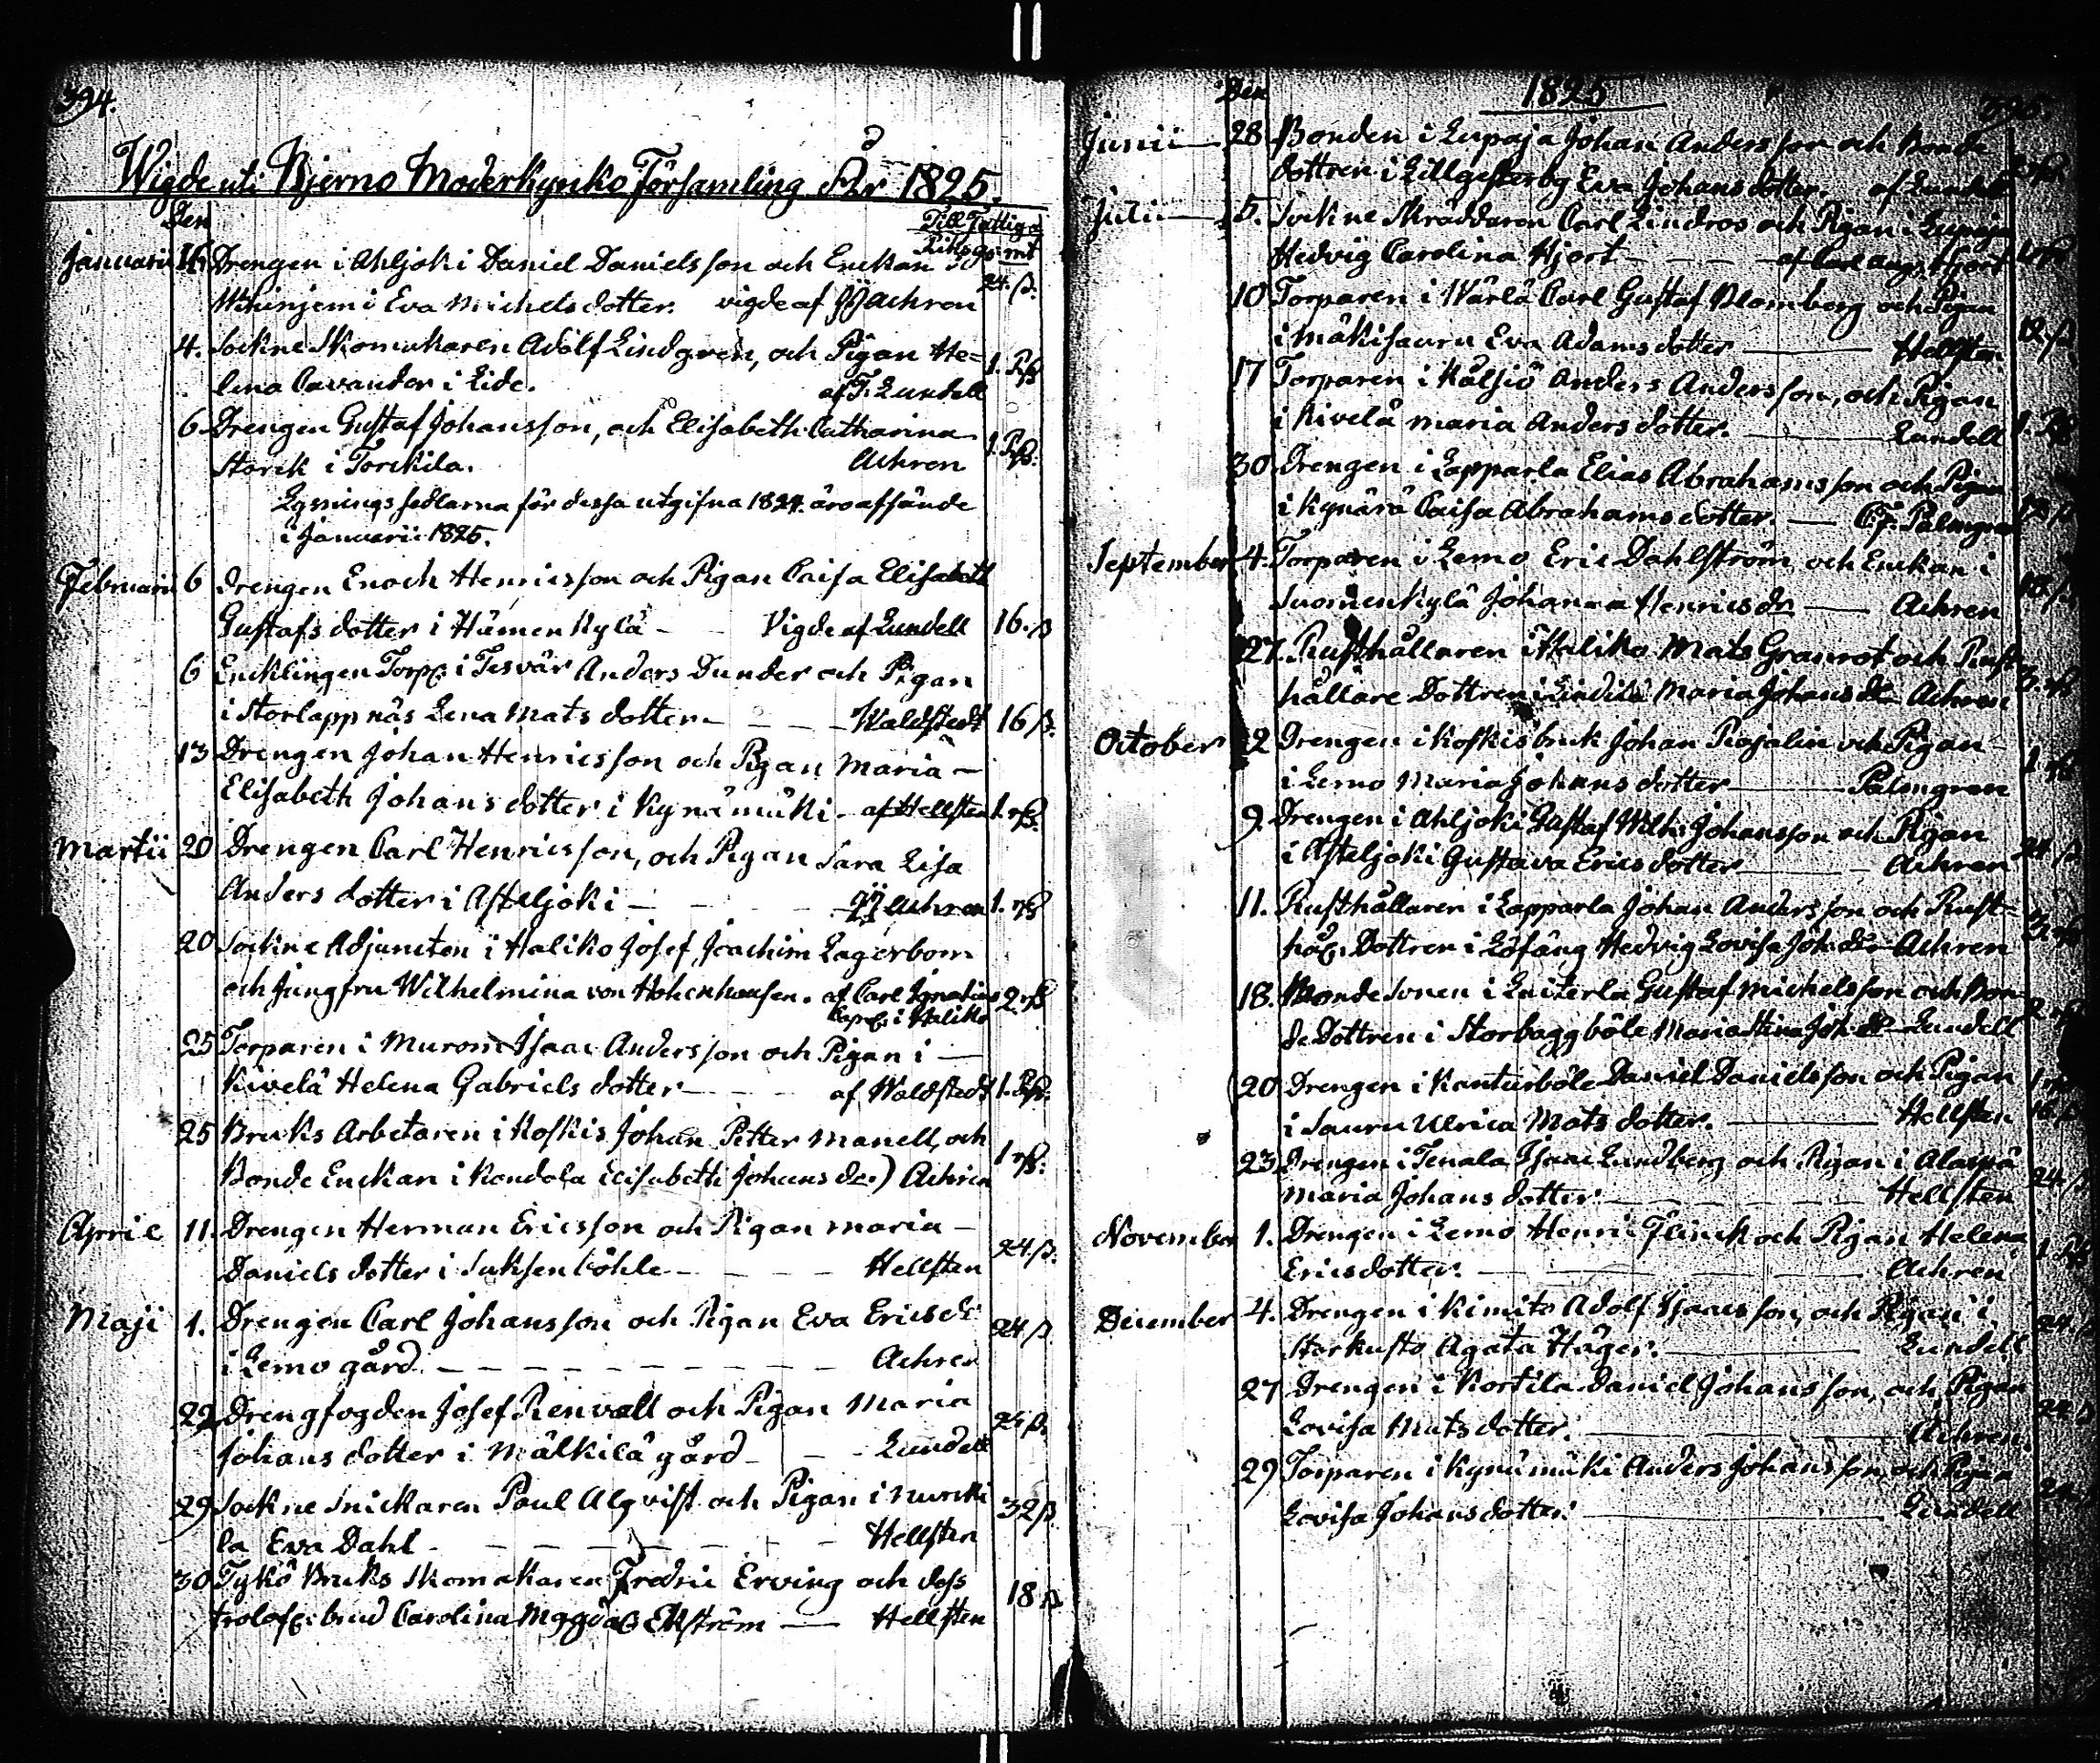 394.
Wigde uti Bjerno Moderkyrko Församling År 1825.
Den
Till Fattiga
Riksgs: mt
Januarii 16 Drengen i Ahljoki Daniel Danielsson och Enckan i
Wihinjemi Eva Michelsdotter. vigde af JJ Achren 24.ß.
4. Sockne Skomakaren Adolf Lindgren, och Pigan He=
lena Cavander i Lide. af F. Lundell 1. Rß
6. Drengen Gustaf Johansson, och Elisabeth Catharina
Storck i Torckila. Achren 1. Rß.
Lysningssedlarna för dessa utgifna 1824. äro afsände
i Januarii 1825.
Februarii 6 Drengen Enoch Henricsson och Pigan Caisa Elisabeth
Gustafsdotter i Hämenkylä - - Vigde af Lundell 16.ß
6 Encklingen Torp: i Tesvär Anders Dunder och Pigan
i Storlappnäs Lena Matsdotter - - - Waldstedt 16ß.
13 Drengen Johan Henricsson och Pigan Maria -
Elisabeth Johansdotter i Kynämäki - af Hellsten 1.rß.
Martii 20 Drengen Carl Henricsson, och Pigan Sara Lisa
Andersdotter i Asteljoki - - - - JJ Achren 1. rß
20 Sockne Adjuncten i Haliko Josef Joachim Lagerbom
och Jungfru Wilhelmina von Hohenhausen. af Carl Ignatius 2.rß
Capel: i Haliko
25 Torparen i Murom Isaac Andersson och Pigan i -
Kivelä Helena Gabrielsdotter - - - af Waldstedt 1.Rß.
25 Bruks Arbetaren i Koskis Johan Petter Manell, och
Bonde Enckan i Kandola Elisabeth Johans dr.) Achren 1 rß.
April 11. Drengen Herman Ericsson och Pigan Maria -
Danielsdotter i Suksenböhle - - - - Hellsten 24.ß.
Maji 1. Drengen Carl Johansson och Pigan Eva Ericsdr
i Lemo gård. - - - - - - - - Achren 24 ß
22 Drengfogden Josef Renvall och Pigan Maria
Johansdotter i Mälkilä gård - - - Lundell 24 ß.
29 Sockne Snickaren Paul Alqvist och Pigan i Nurcki
la Eva Dahl - - - - - - - Hellsten 32ß.
30 Tykö Bruks Skomakaren Fredric Erving och dess
trolof: brud Carolina Magdal: Ekström - Hellsten 18 ß.
Den
1825
395.
Junii 28 Bonden i Lupaja Johan Andersson och Bonde
dottren i Lillgesterby Eva Johansdotter. af Lundell
Julii 5. Sockne Skräddaren Carl Lindros och Pigan i Lupaja
Hedvig Carolina Hjort - - - - af Carl Aug. Hjort
10 Torparen i Wärlä Carl Gustaf Blomberg och Pigan
i Mäkisauru Eva Adamsdotter - Hellsten 12.ß
17 Torparen i Kälsiö Anders Andersson, och Pigan
i Kivelä Maria Andersdotter. - Lundell 1. Rß
30. Drengen i Lapparla Elias Abrahamsson och Pigan
i Kynärä Caisa Abrahamsdotter. - C.F. Palmgren
September 4. Torparen i Lemo Eric Dahlström och Enckan i
Suomenkylä Johanna Henricsdr - Achren
27. Rusthållaren i Haliko Mats Granrot och Rust=
hållare Dottren i Lindila Maria Johansdr Achren 3. rß
October 2 Drengen i Koskis bruk Johan Rosalin och Pigan -
i Lemo Maria Johansdotter - Palmgren
9. Drengen i Ahljoki Gustaf Wilh: Johansson och Pigan
i Asteljoki Gustava Ericsdotter - Achren 24.ß
11. Rusthållaren i Lapparla Johan Andersson och Rust=
hål: Dottren i Löfäng Hedvig Lovisa Joh:dr - Achren
18. Bonde Sonen i Luiterla Gustaf Michelsson och Bon
de Dottren i Storbaggböle Maria Stina Joh:dr - Lundell
20 Drengen i Kanturböle Daniel Danielsson och Pigan
i Sauru Ulrica Matsdotter. - Hellsten
23 Drengen i Tenala Isaac Lundberg och Pigan i Alaspä
Maria Johansdotter. - - - Hellsten 24.ß
November 1. Drengen i Lemo Henric Flinck och Pigan Helena
Ericsdotter. - - - Achren
December 4. Drengen i Kimito Adolf Isaacsson, och Pigan i
Storkusto Agata Häger. - Lundell 24.ß
27 Drengen i Kortila Daniel Johansson, och Pigan
Lovisa Matsdotter. - Achren.
29 Torparen i Kynämäki Anders Johansson, och Pigan
Lovisa Johansdotter. - Lundell